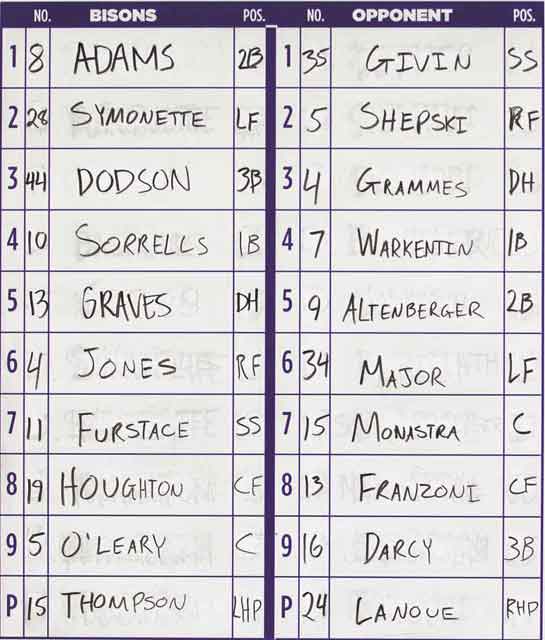 NO. BISONS POS. NO. OPPONENT POS.
1 8 ADAMS 2B 1 35 GIVIN SS
2 28 SYMONETTE LF 2 5 SHEPSKI RF
3 44 DODSON 3B 3 4 GRAMMES DH
4 10 SORRELLS 1B 4 7 WARKENTIN 1B
5 13 GRAVES DH 5 9 ALTENBERGER 2B
6 4 JONES RF 6 34 MAJOR LF
7 11 FURSTACE SS 7 15 MONASTRA C
8 19 HOUGHTON CF 8 13 FRANZONI CF
9 5 O'LEARY C 9 16 DARCY 3B
P 15 THOMPSON LHP P 24 LANOUE RHP